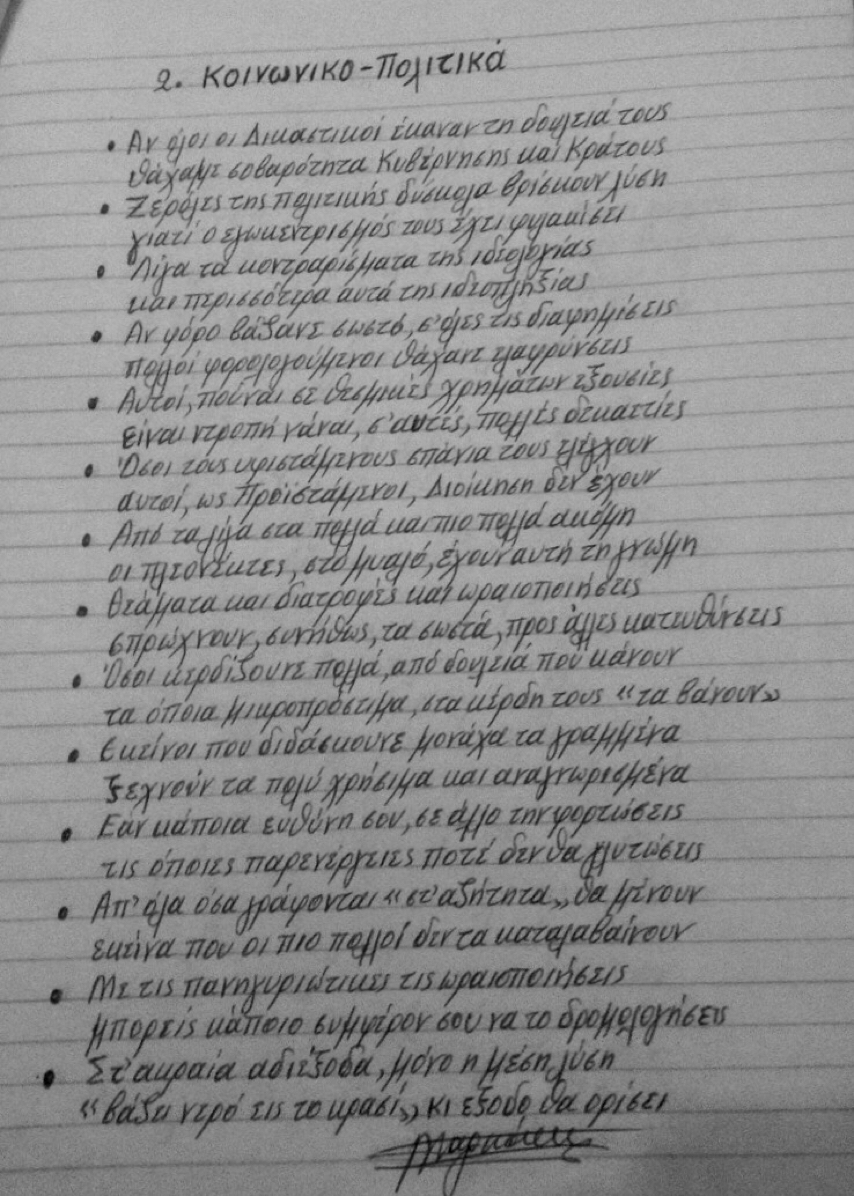 2. Κοινωνικο-Πολιτικά
• Αν όλοι οι Δικαστικοί έκαναν τη δουλειά τους
θάχαμε σοβαρότητα Κυβέρνησης και Κράτους
• Ξερόλες της πολιτικής δύσκολα βρίσκουν λύση
γιατί ο εγωκεντρισμός τους έχει φυλακίσει
• Λίγα τα κοντραρίσματα της ιδεολογίας
και περισσότερα αυτά της ιδεοπληξίας
• Αν φόρο βάζανε σωστό, σ'όλες τις διαφημίσεις
πολλοί φορολογούμενοι θάχανε ελαφρύνσεις
• Αυτοί, πούναι σε θεσμικές χρημάτων εξουσίες
είναι ντροπή νάναι, σ'αυτές, πολλές δεκαετίες
• Όσοι τους υφιστάμενους σπάνια τους ελέγχουν
αυτοί, ως Προϊστάμενοι, Διοίκηση δεν έχουν
• Από τα λίγα στα πολλά και πιο πολλά ακόμη
οι πλεονέκτες, στο μυαλό, έχουν αυτή τη γνώμη
• Θεάματα και διατροφές και ωραιοποιήσεις
σπρώχνουν, συνήθως, τα σωστά, προς άλλες κατευθύνσεις
• Όσοι κερδίζουνε πολλά, από δουλειά που κάνουν
τα όποια μικροπρόστιμα, στα κέρδη τους «τα βάνουν»
• Εκείνοι που διδάσκουνε μονάχα τα γραμμένα
ξεχνούν τα πολύ χρήσιμα και αναγνωρισμένα
• Εάν κάποια ευθύνη σου, σε άλλο την φορτώσεις
τις όποιες παρενέργειες ποτέ δεν θα γλυτώσεις
• Απ' όλα όσα γράφονται «στ'αζήτητα» θα μένουν
εκείνα που οι πιο πολλοί δεν τα καταλαβαίνουν
• Με τις πανηγυριώτικες τις ωραιοποιήσεις
μπορείς κάποιο συμφέρον σου να το δρομολογήσεις
• Στ'ακραία αδιέξοδα, μόνο η μέση λύση
«βάζει νερό εις το κρασί» κι έξοδο θα ορίσει